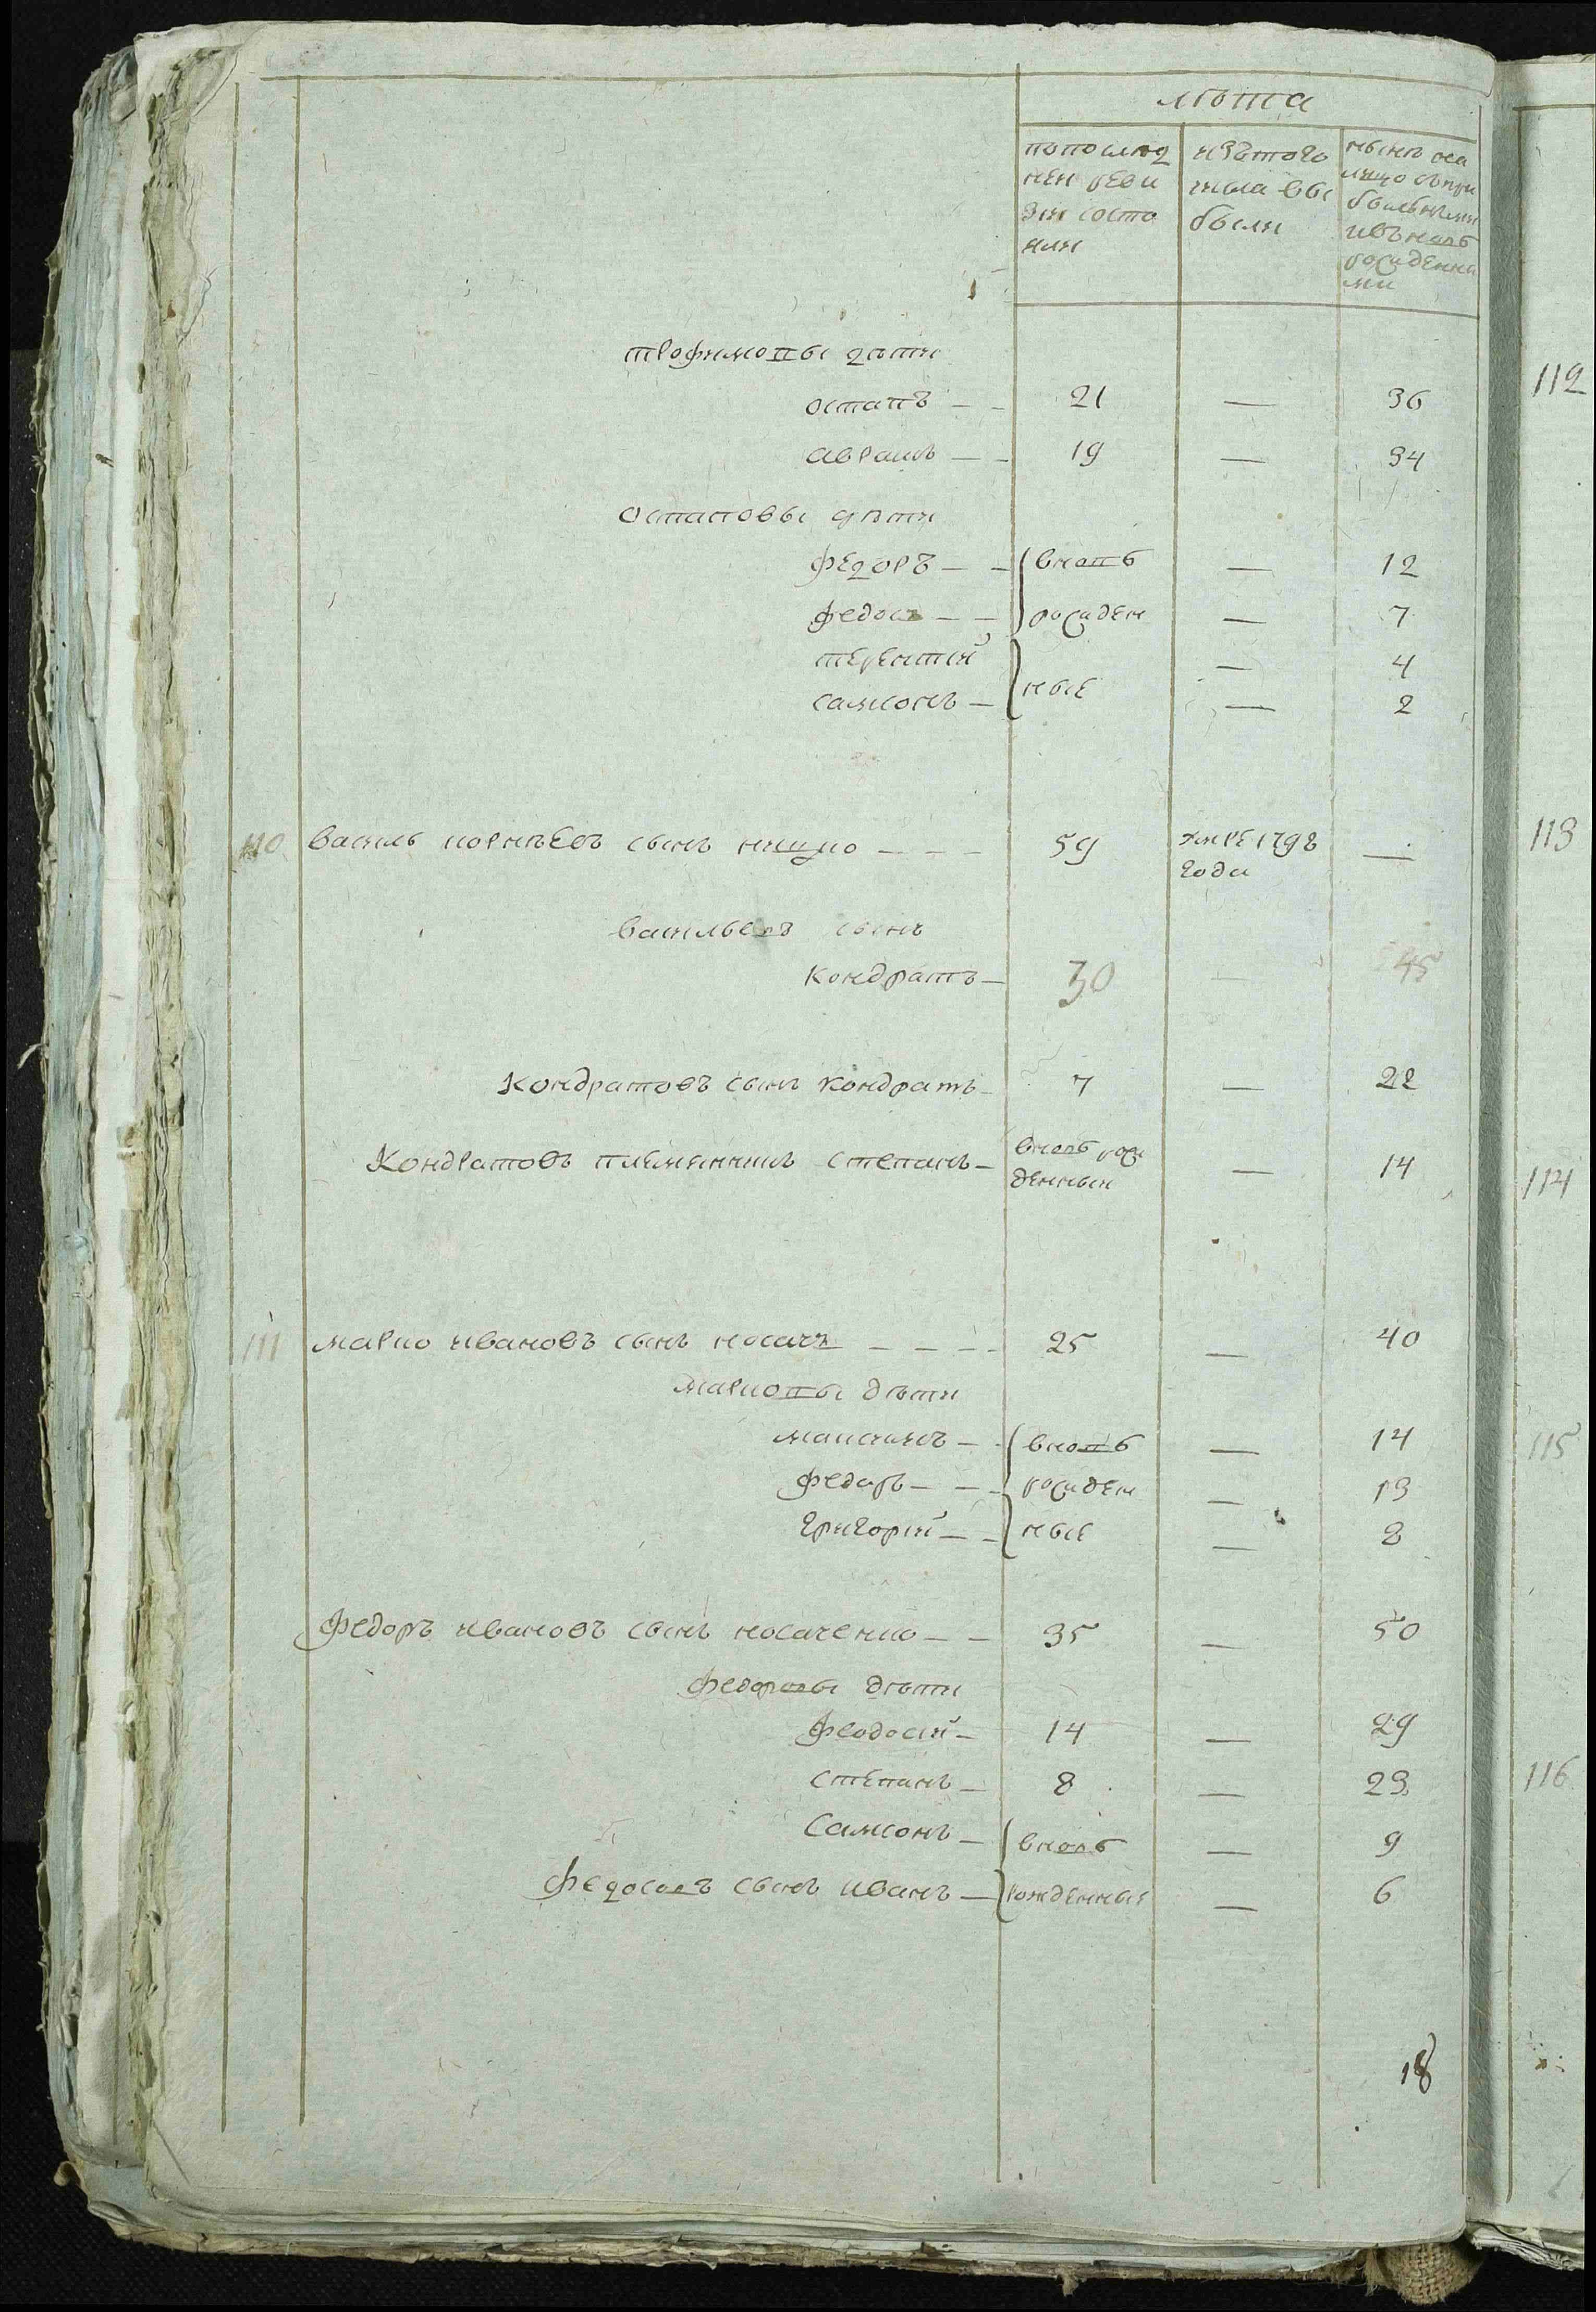 лѣта
попослед
ней реви
зии состо
яли
изътого
числа вы
были
нынѣ на
лицо съпри
былыми
ивъновь
рожденны
ми
трофимовы дѣти
остапъ — — 21 — 36
аврамъ — — 19 — 34
остаповы дѣти
федоръ — — вновь — 12
федосъ — — рожден — 7
терентий ные — 4
самсонъ — — 2
110 василь корнѣевъ сынъ — — — 59 умре 1798 —
года
васильевъ сынъ
кондратъ — 30 — 45
кондратовъ сынъ кондратъ — 7 — 22
кондратовъ племянникъ степанъ — вновь рож — 14
денный
111 марко ивановъ сынъ носачъ — — — — 25 — 40
марковы дѣти
максимъ — вновь — 14
федоръ — — рожден — 13
григорий — — ные — 8
федоръ ивановъ сынъ носаченко — — 35 — 50
федоровы дѣти
феодосий — 14 — 29
степанъ — 8 — 23
самсонъ — вновь — 9
федосовъ сынъ иванъ — рожденные — 6
18
112
113
114
115
116